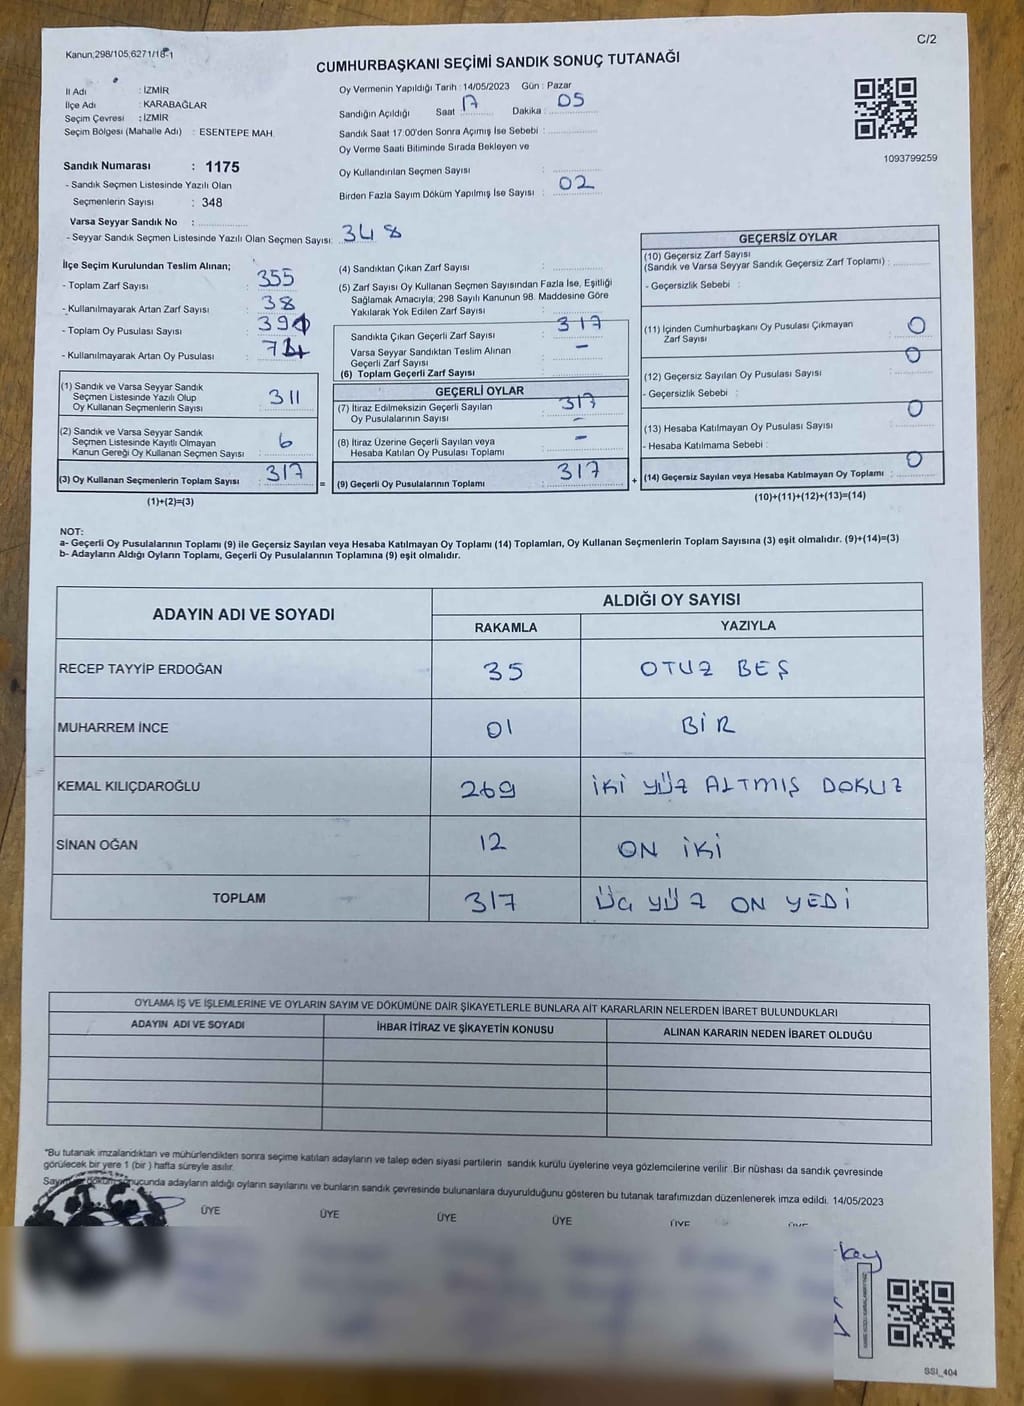 Kanun;298/105,6271/18-1
C/2
CUMHURBAŞKANI SEÇİMİ SANDIK SONUÇ TUTANAĞI
İl Adı : İZMİR
İlçe Adı : KARABAĞLAR
Seçim Çevresi : İZMİR
Seçim Bölgesi (Mahalle Adı) : ESENTEPE MAH.
Oy Vermenin Yapıldığı Tarih : 14/05/2023 Gün : Pazar
Sandığın Açıldığı Saat 17 Dakika : 05
Sandık Saat 17:00'den Sonra Açımış İse Sebebi :
Oy Verme Saati Bitiminde Sırada Bekleyen ve
Oy Kullandırılan Seçmen Sayısı :
Birden Fazla Sayım Döküm Yapılmış İse Sayısı : 02
1093799259
Sandık Numarası : 1175
- Sandık Seçmen Listesinde Yazılı Olan
Seçmenlerin Sayısı : 348
Varsa Seyyar Sandık No :
- Seyyar Sandık Seçmen Listesinde Yazılı Olan Seçmen Sayısı: 348
İlçe Seçim Kurulundan Teslim Alınan;
- Toplam Zarf Sayısı : 355
- Kullanılmayarak Artan Zarf Sayısı : 38
- Toplam Oy Pusulası Sayısı :
- Kullanılmayarak Artan Oy Pusulası :
(1) Sandık ve Varsa Seyyar Sandık
Seçmen Listesinde Yazılı Olup
Oy Kullanan Seçmenlerin Sayısı : 311
(2) Sandık ve Varsa Seyyar Sandık
Seçmen Listesinde Kayıtlı Olmayan
Kanun Gereği Oy Kullanan Seçmen Sayısı : 6
(3) Oy Kullanan Seçmenlerin Toplam Sayısı : 317
(1)+(2)=(3)
=
(4) Sandıktan Çıkan Zarf Sayısı :
(5) Zarf Sayısı Oy Kullanan Seçmen Sayısından Fazla İse, Eşitliği
Sağlamak Amacıyla; 298 Sayılı Kanunun 98. Maddesine Göre
Yakılarak Yok Edilen Zarf Sayısı :
Sandıkta Çıkan Geçerli Zarf Sayısı : 317
Varsa Seyyar Sandıktan Teslim Alınan
Geçerli Zarf Sayısı : -
(6) Toplam Geçerli Zarf Sayısı :
GEÇERLİ OYLAR
(7) İtiraz Edilmeksizin Geçerli Sayılan
Oy Pusulalarının Sayısı : 317
-
(8) İtiraz Üzerine Geçerli Sayılan veya
Hesaba Katılan Oy Pusulası Toplamı : -
(9) Geçerli Oy Pusulalarının Toplamı : 317
+
GEÇERSİZ OYLAR
(10) Geçersiz Zarf Sayısı
(Sandık ve Varsa Seyyar Sandık Geçersiz Zarf Toplamı) :
- Geçersizlik Sebebi :
(11) İçinden Cumhurbaşkanı Oy Pusulası Çıkmayan
Zarf Sayısı : 0
(12) Geçersiz Sayılan Oy Pusulası Sayısı : 0
- Geçersizlik Sebebi :
(13) Hesaba Katılmayan Oy Pusulası Sayısı : 0
- Hesaba Katılmama Sebebi :
(14) Geçersiz Sayılan veya Hesaba Katılmayan Oy Toplamı : 0
(10)+(11)+(12)+(13)=(14)
NOT:
a- Geçerli Oy Pusulalarının Toplamı (9) ile Geçersiz Sayılan veya Hesaba Katılmayan Oy Toplamı (14) Toplamları, Oy Kullanan Seçmenlerin Toplam Sayısına (3) eşit olmalıdır. (9)+(14)=(3)
b- Adayların Aldığı Oyların Toplamı, Geçerli Oy Pusulalarının Toplamına (9) eşit olmalıdır.
ADAYIN ADI VE SOYADI
ALDIĞI OY SAYISI
RAKAMLA YAZIYLA
RECEP TAYYİP ERDOĞAN 35 OTUZ BEŞ
MUHARREM İNCE 01 BİR
KEMAL KILIÇDAROĞLU 269 İKİ YÜZ ALTMIŞ DOKUZ
SİNAN OĞAN 12 ON İKİ
TOPLAM 317 ÜÇ YÜZ ON YEDİ
OYLAMA İŞ VE İŞLEMLERİNE VE OYLARIN SAYIM VE DÖKÜMÜNE DAİR ŞİKAYETLERLE BUNLARA AİT KARARLARIN NELERDEN İBARET BULUNDUKLARI
ADAYIN ADI VE SOYADI İHBAR İTİRAZ VE ŞİKAYETİN KONUSU ALINAN KARARIN NEDEN İBARET OLDUĞU
*Bu tutanak imzalandıktan ve mühürlendikten sonra seçime katılan adayların ve talep eden siyasi partilerin sandık kurulu üyelerine veya gözlemcilerine verilir .Bir nüshası da sandık çevresinde
görülecek bir yere 1 (bir ) hafta süreyle asılır.
adayların aldığı oyların sayılarını ve bunların sandık çevresinde bulunanlara duyurulduğunu gösteren bu tutanak tarafımızdan düzenlenerek imza edildi. 14/05/2023
ÜYE ÜYE ÜYE ÜYE ÜYE
SSI_404